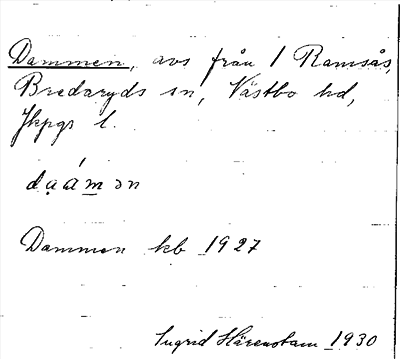 Dammen, avs från 1 Ramsås,
Bredaryds sn, Västbo hd,
Jkpgs l.
da̤ám̲ən
Dammen kb 1927
Ingrid Härenstam 1930